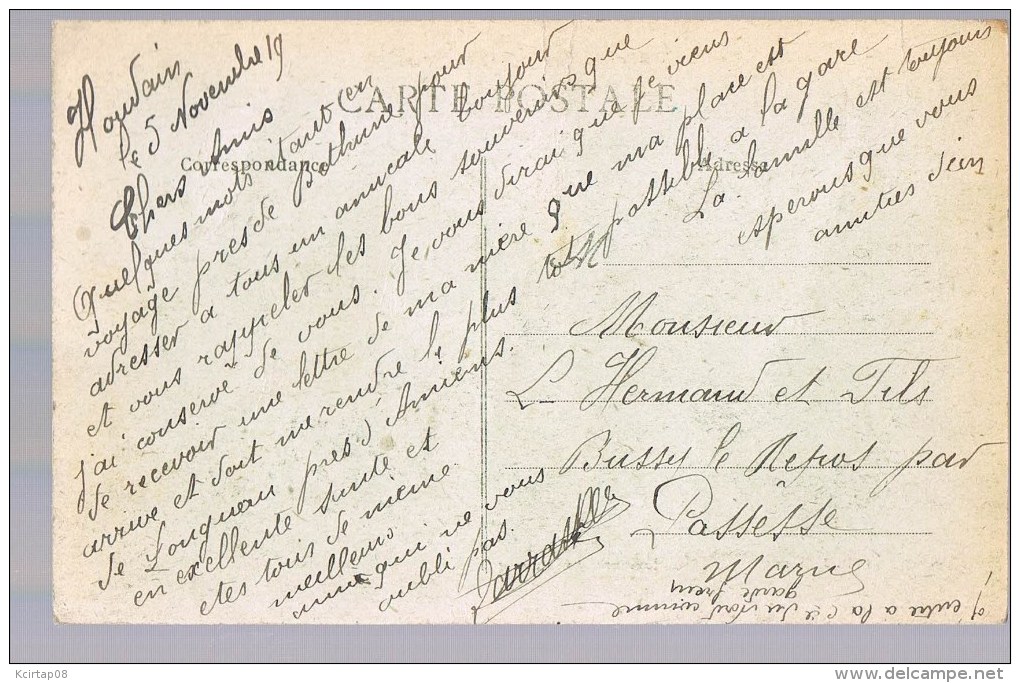 CARTE POSTALE
Correspondance
Adresse
Houdain
le 5 Novembre 19
Chers Amis
Quelques mots étant en
voyage pres de Bethune pour
adresser a tous un amicale bonjour
et vous rappeler les bons souvenirs que
j'ai conservé de vous. Je vous dirai que je viens
de recevoir une lettre de ma mère que ma place est
arrivé et doit me rendre le plus tôt possible a la gare
de Longueau pres d'Amiens. La famille est toujours
en excellente santé et esperons que vous
etes tous de même amitiés d'un
meilleurs
amis qui ne vous
oubli pas.
Monsieur
L. Hermand et Fils
Bussy le Repos par
Possesse
Marne
j'entre a la Cie du Nord comme
garde frein
Kcirtap08
delcampe.net